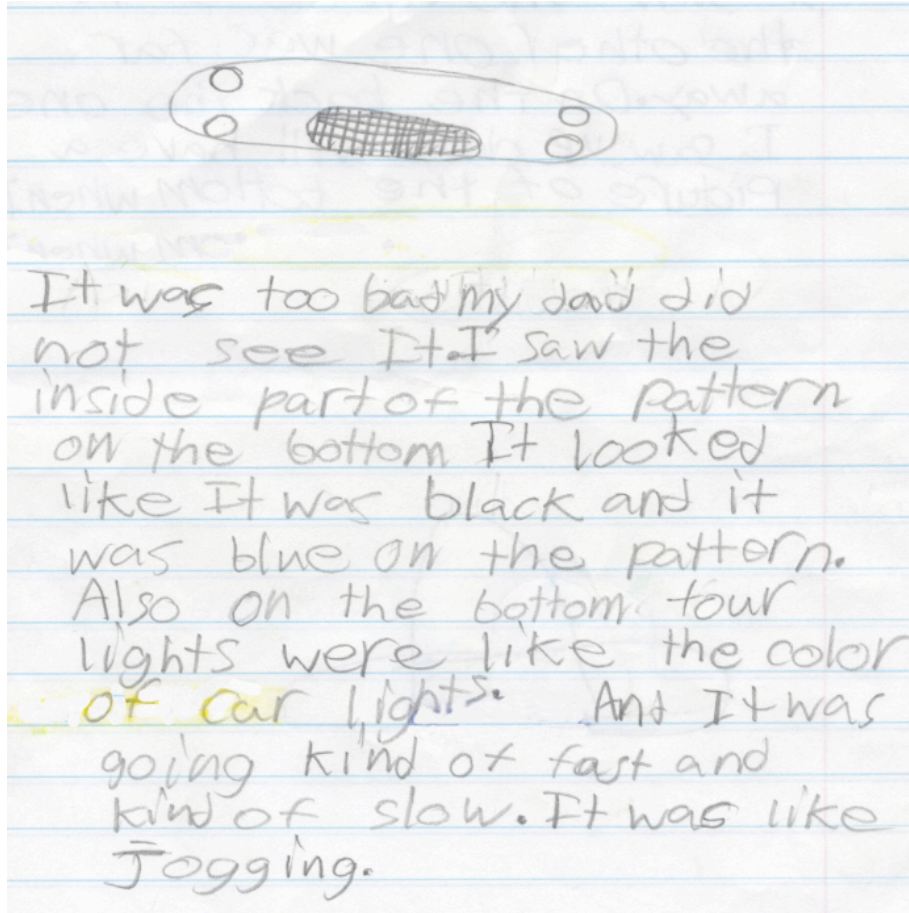 It was too bad my dad did
not see It. I saw the
inside part of the pattern
on the bottom It looked
like It was black and it
was blue on the pattern.
Also on the bottom four
lights were like the color
of car lights. And It was
going kind of fast and
kind of slow. It was like
Jogging.